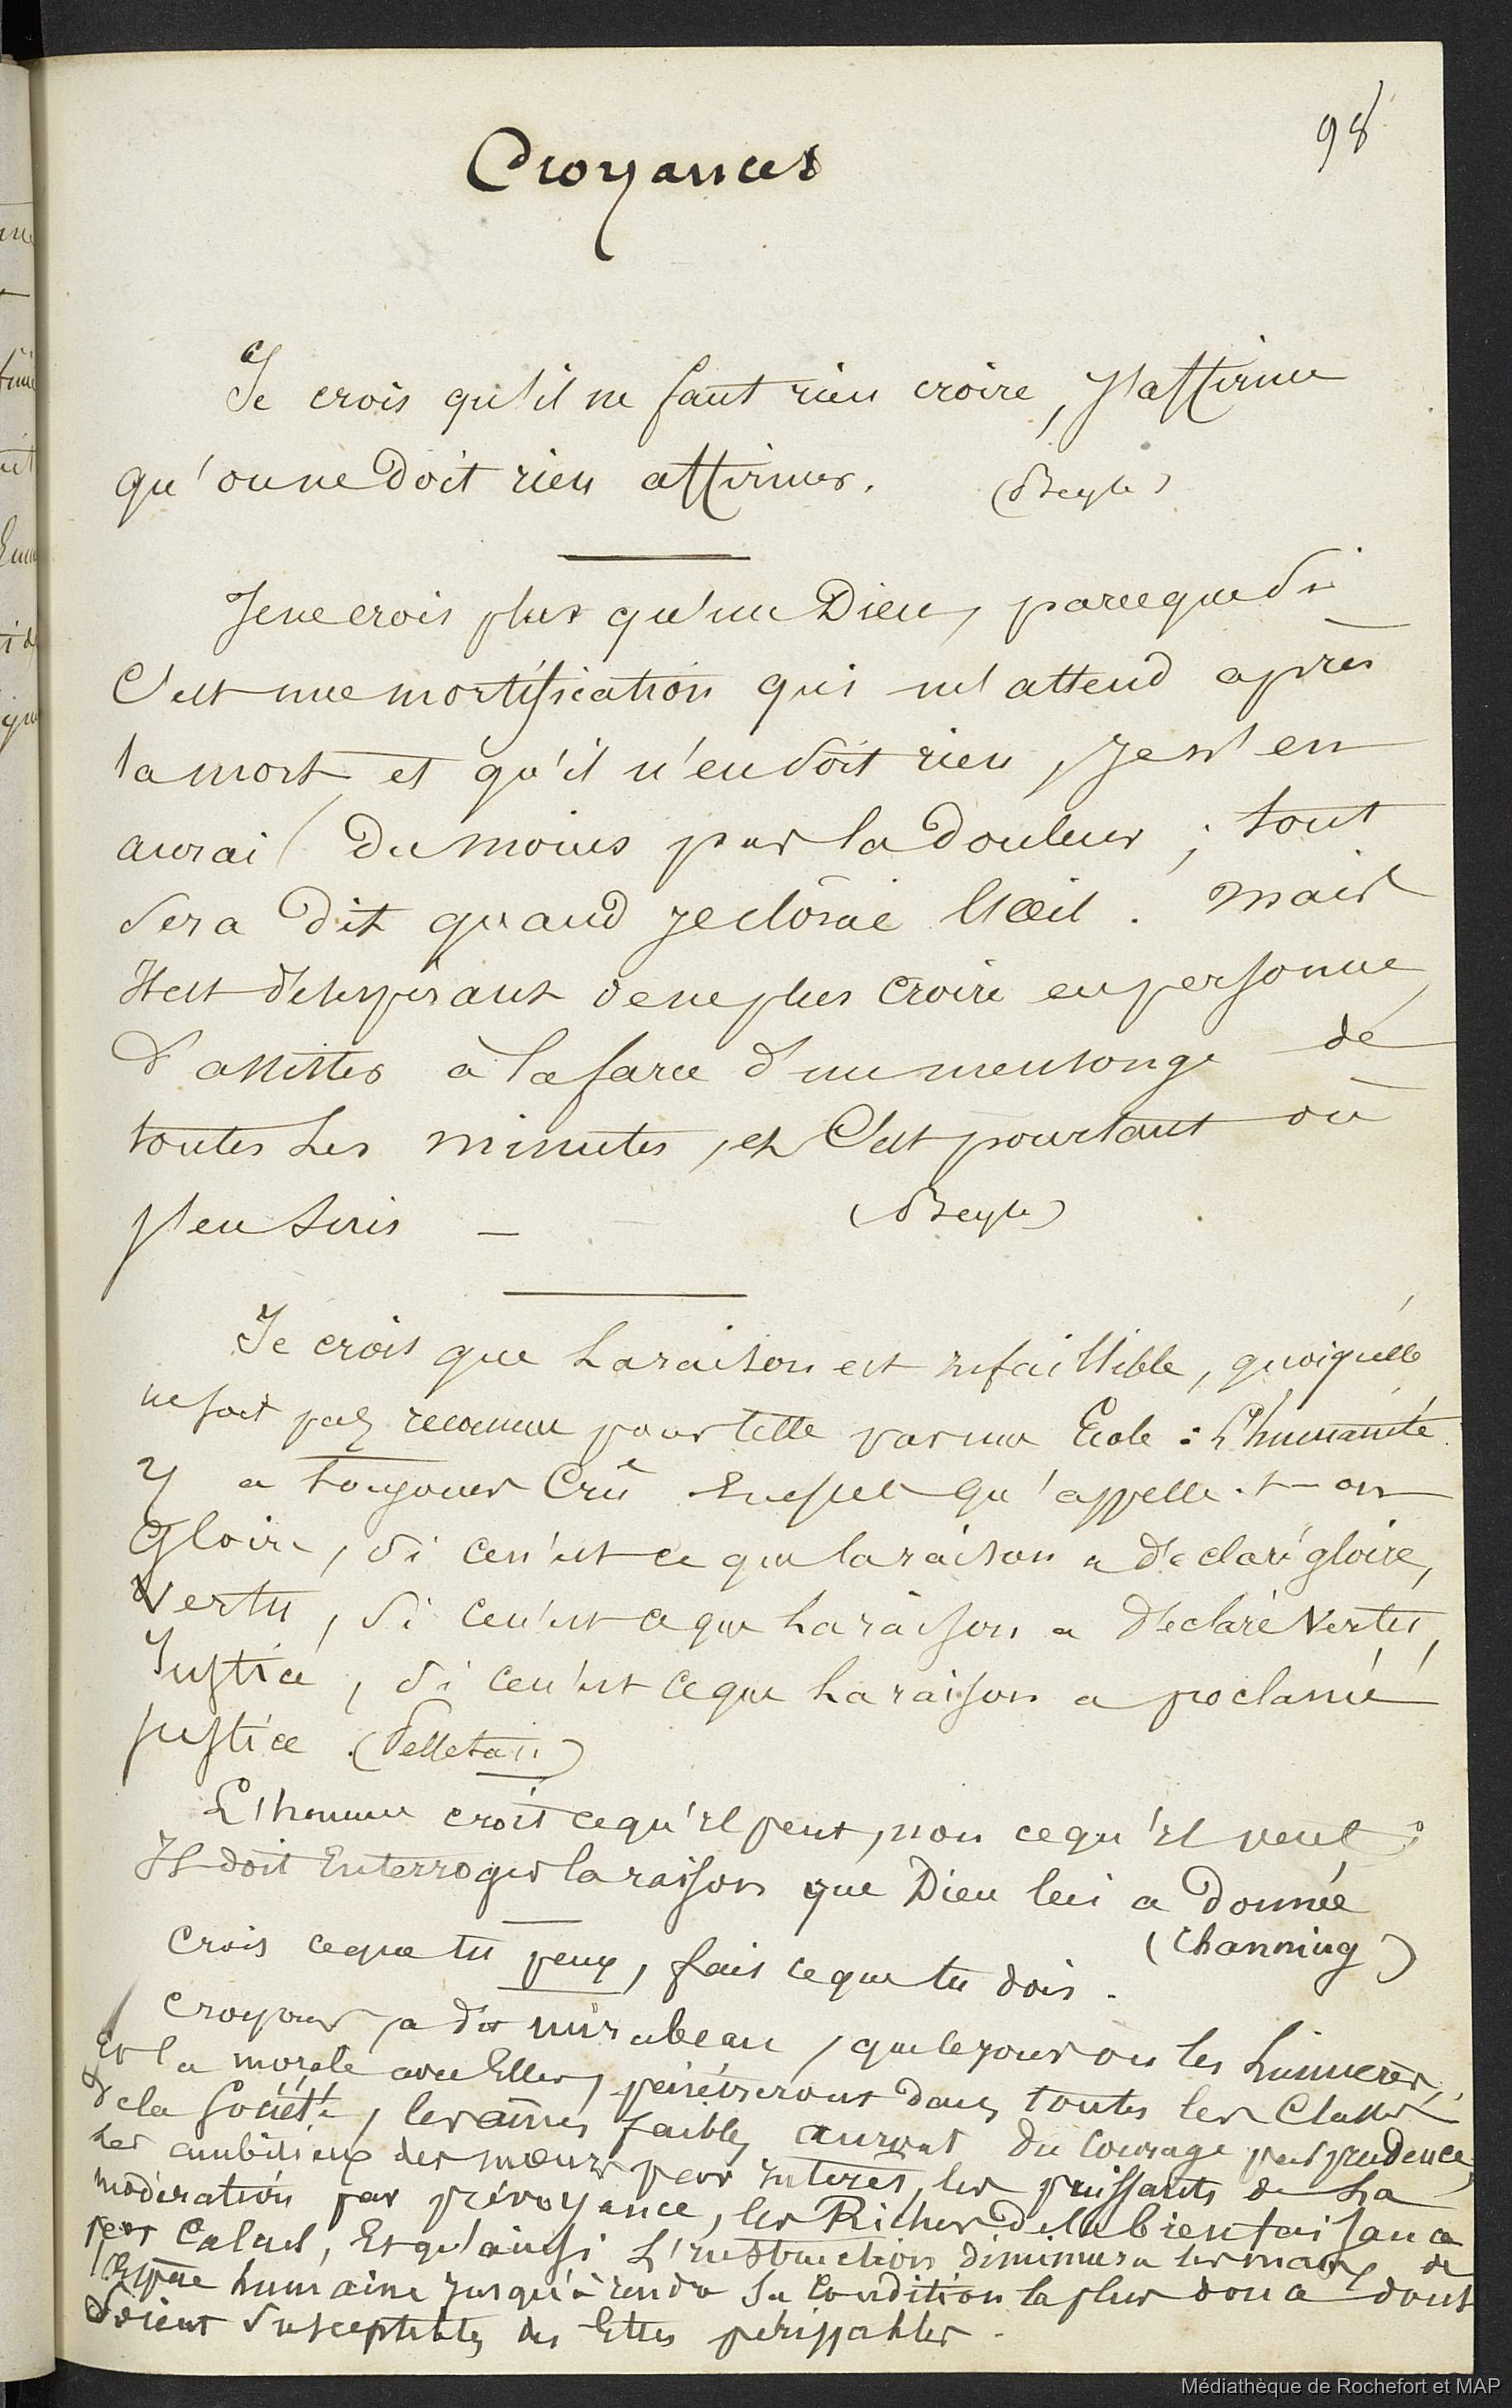 98
Croyances
Je crois qu'il ne faut rien croire, j'affirme
qu'on ne Doit rien affirmer. (Beyle)
Je ne crois plus qu'un Dieu, parceque si
C'est une mortification qui m'attend après
la mort et qu'il n'en soit rien, je n'en
aurai Du moins pas la Douleur ; tout
sera Dit quand je clorai l'œil. Mais
Il est désespérant de ne plus croire en personne,
d'assister à la farce d'un mensonge de
toutes les minutes, et C'est pourtant où
j'en suis — (Beyle)
Je crois que la raison est infaillible, quoiqu'elle
ne soit pas reconnue pour telle par une Ecole : L'humanité
y a toujours Crû. En effet qu'appelle-t-on
Gloire, si ce n'est ce que la raison a déclaré gloire,
Vertu, si ce n'est ce que la raison a déclaré Vertu,
Justice, si ce n'est ce que la raison a proclamé
justice. (Pelletan)
L'homme croit ce qu'il peut, non ce qu'il veut ;
Il doit interroger la raison que Dieu lui a Donnée
(Channing)
Crois ce que tu peux, fais ce que tu dois.
Croyons, a dit Mirabeau, que le jour où les lumières,
Et la morale avec Elles, pénétreront dans toutes les Classes
De la Société, les âmes faibles auront du Courage par prudence,
les ambitieux des mœurs par intérêt, les puissants de la
modération par prévoyance, les Riches De la bienfaisance
par Calcul, Et qu'ainsi L'instruction diminuera les maux de
l'Espèce humaine jusqu'à rendre sa Condition la plus douce dont
Soient Susceptibles des Etres périssables.
Médiathèque de Rochefort et MAP